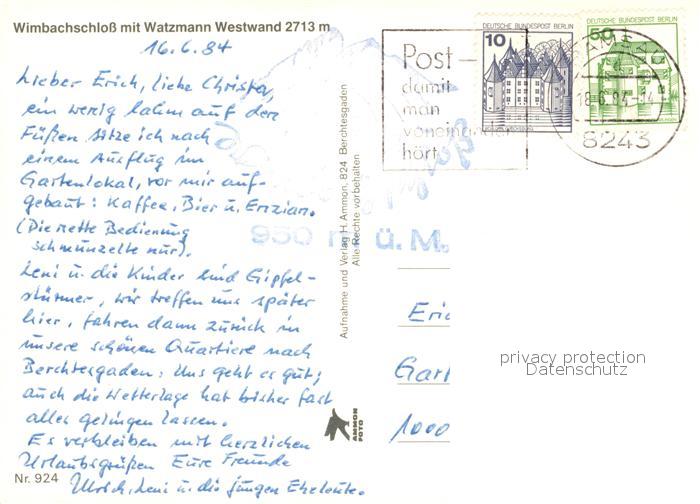 Wimbachschloß mit Watzmann Westwand 2713 m
16.6.84
Lieber Erich, liebe Christa,
ein wenig lahm auf den
Füßen sitze ich nach
einem Ausflug im
Gartenlokal, vor mir auf-
gebaut: Kaffee, Bier u. Enzian.
(Die nette Bedienung
schmunzelte nur).
Leni u. die Kinder sind Gipfel-
stürmer, wir treffen uns später
hier, fahren dann zurück in
unsere schönen Quartiere nach
Berchtesgaden. Uns geht es gut;
auch die Wetterlage hat bisher fast
alles gelingen lassen.
Es verbleiben mit herzlichen
Urlaubsgrüßen Eure Freunde
Ulrich, Leni u. die jungen Eheleute.
Nr. 924
Aufnahme und Verlag H. Ammon, 824 Berchtesgaden
Alle Rechte vorbehalten
AMMON
FOTO
950 m ü. M.
Post -
damit
man
voneinander
hört
DEUTSCHE BUNDESPOST BERLIN
10
DEUTSCHE BUNDESPOST BERLIN
50
18.6.84-14
8243
Eric
Gart
1000
privacy protection
Datenschutz